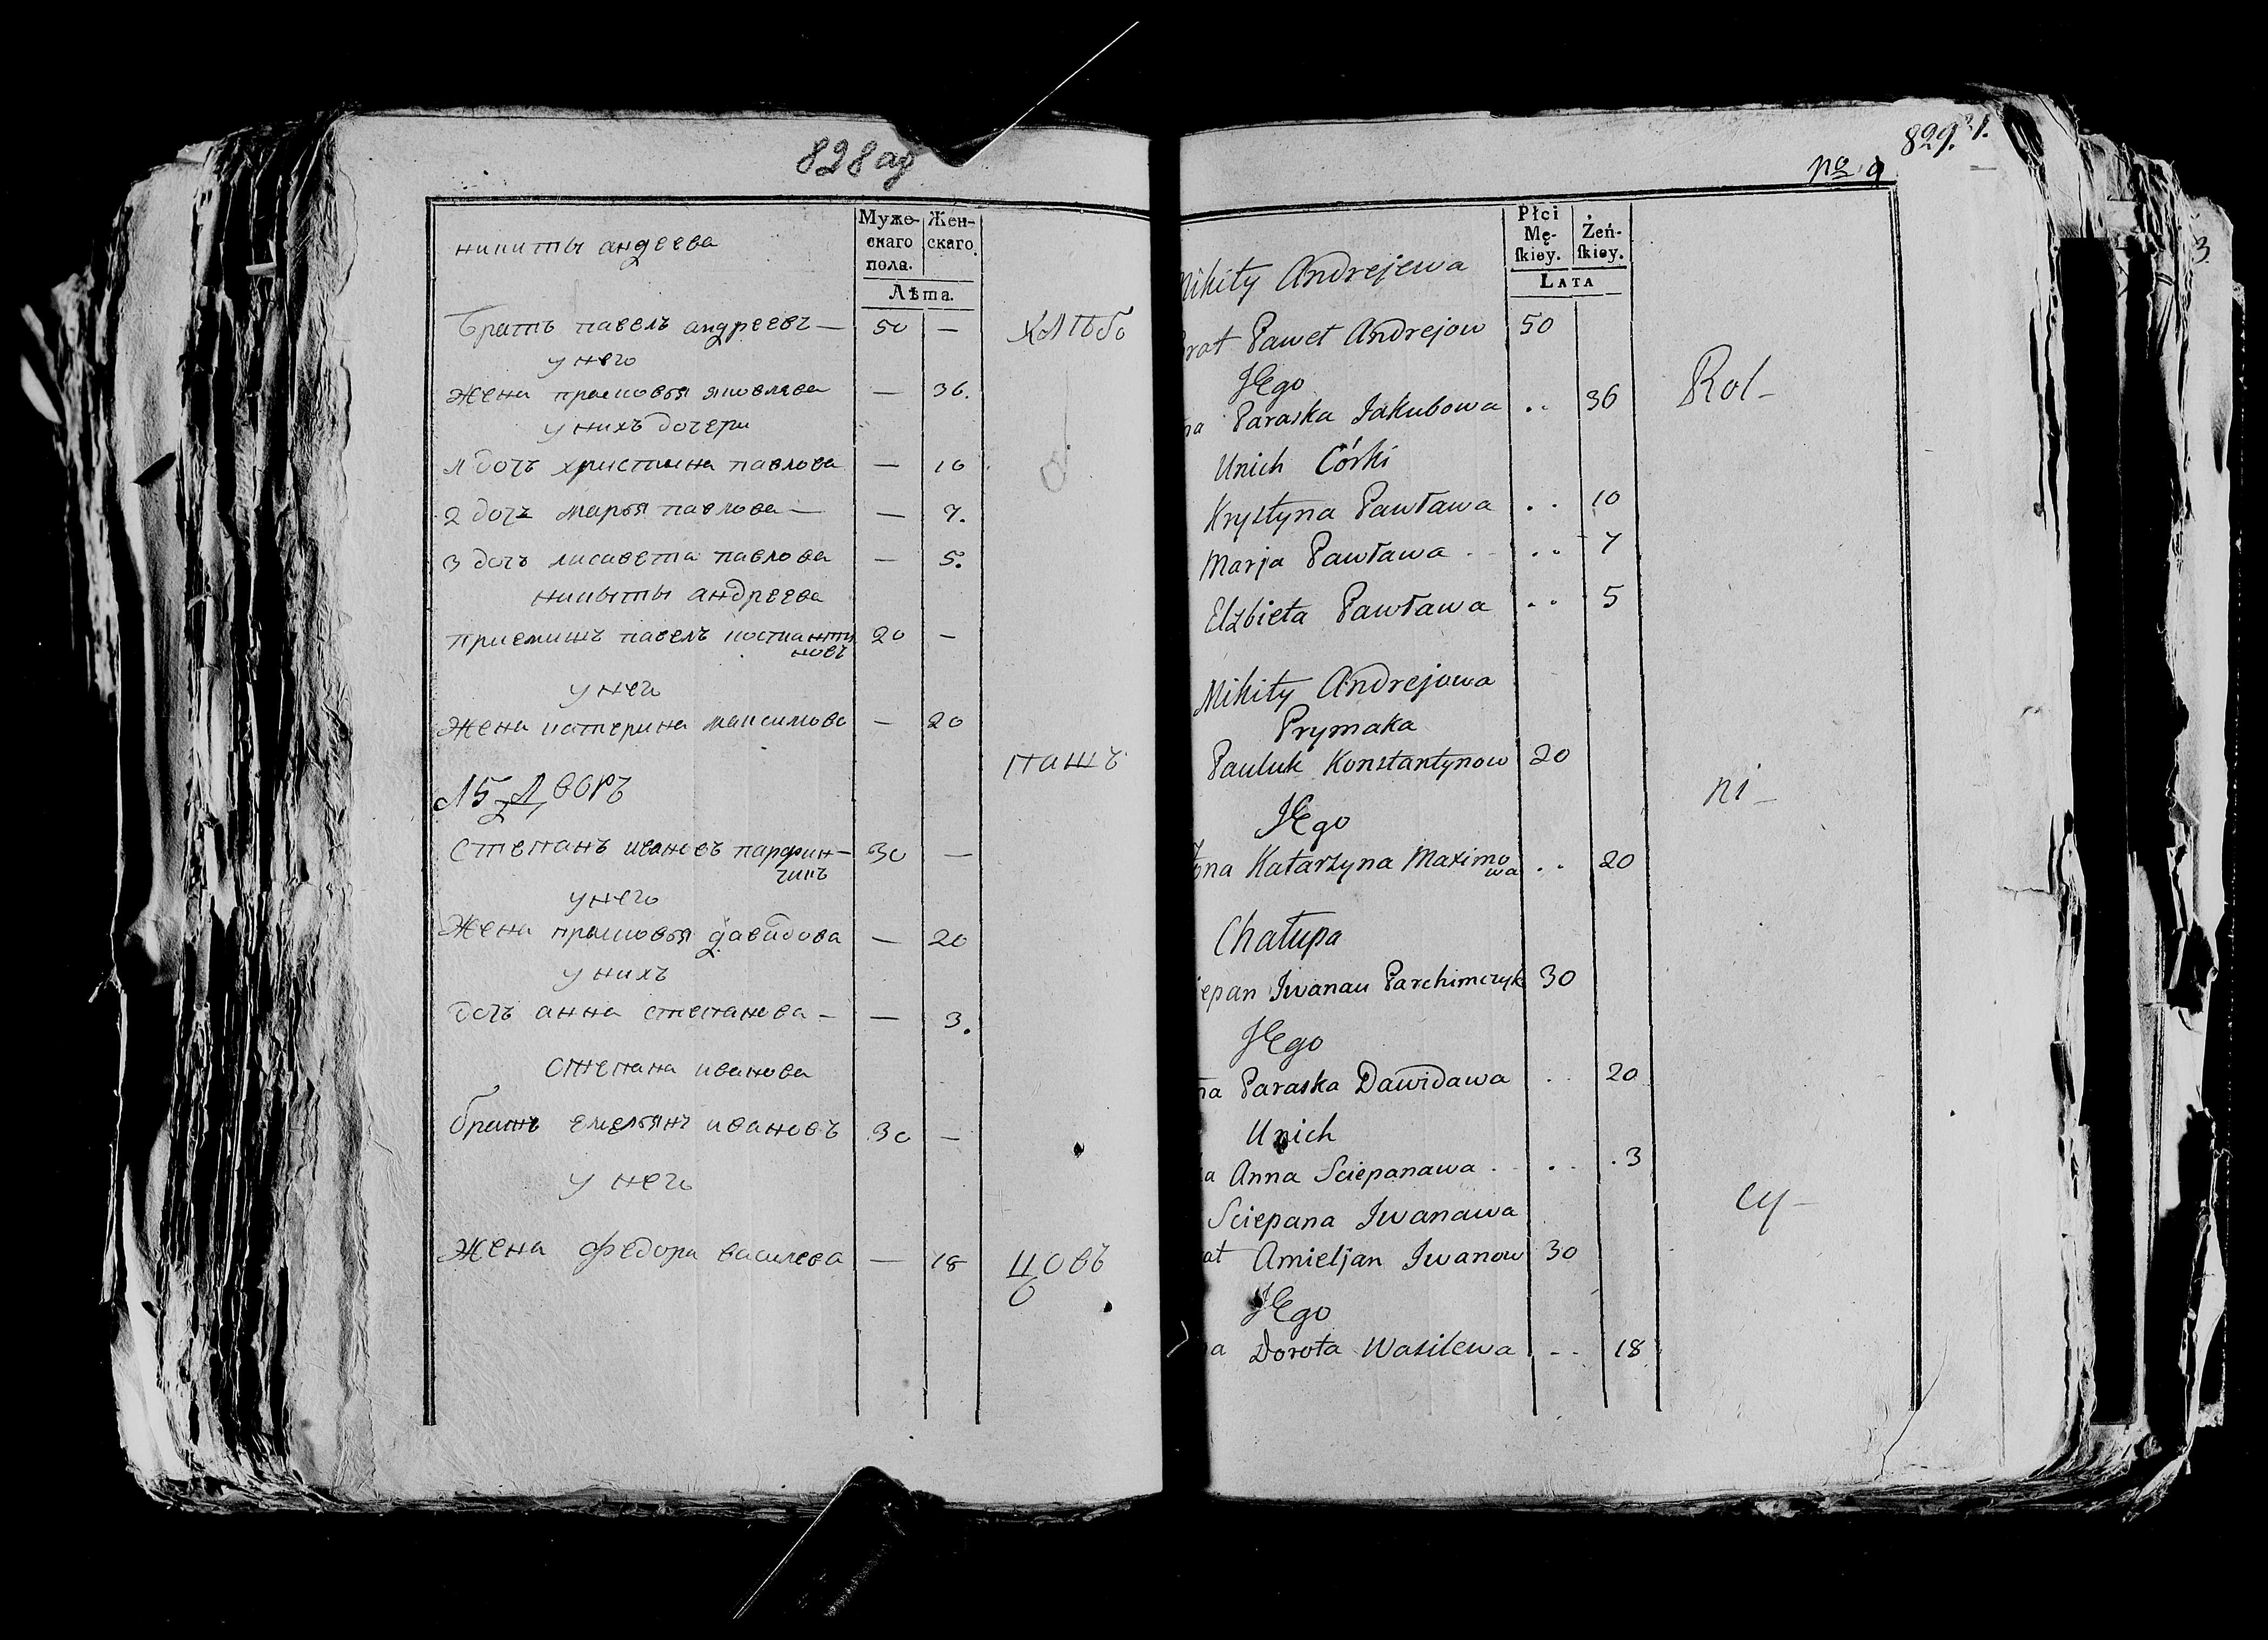 828 об
Муже-
скаго
пола.
Жен-
скаго.
Лѣта.
никиты андеева
братъ павелъ андреевъ — 50 —
у него
жена прасковья яковлева — 36.
у нихъ дочери
1 дочъ христина павлова — 10
2 дочъ марья павлова — — 7.
3 дочъ лисавета павлова — 5.
никиты андреева
приемишъ павелъ костианти 20 —
новъ
у него
жена катерина максимова — 20
15 Дворъ
степанъ ивановъ парфин- 30 —
чикъ
у него
жена прасковья давидова — 20
у нихъ
дочъ анна степанова — — 3.
степана иванова
братъ емельянъ ивановъ 30 —
у него
жена федора василева — 18
хлѣбо
пашъ
цовъ
829.
No 9
Płci
Mę-
skiey.
Żeń-
skiey.
LATA
Mikity Andrejewa
Brat Paweł Andrejow 50
JEgo
na Paraska Jakubowa .. 36
Unich Córki
Krystyna Pawława .. 10
Marja Pawława .. 7
Elzbieta Pawława .. 5
Mikity Andrejowa
Prymaka
Pauluk Konstantynow 20
JEgo
żona Katarzyna Maximo .. 20
wa
Chałupa
iepan Iwanau Parchimczyk 30
JEgo
na Paraska Dawidawa .. 20
Unich
a Anna Sciepanawa .. .3
Sciepana Iwanawa
at Amieljan Iwanow 30
JEgo
na Dorota Wasilewa .. 18
Rol-
ni-
cy-
3